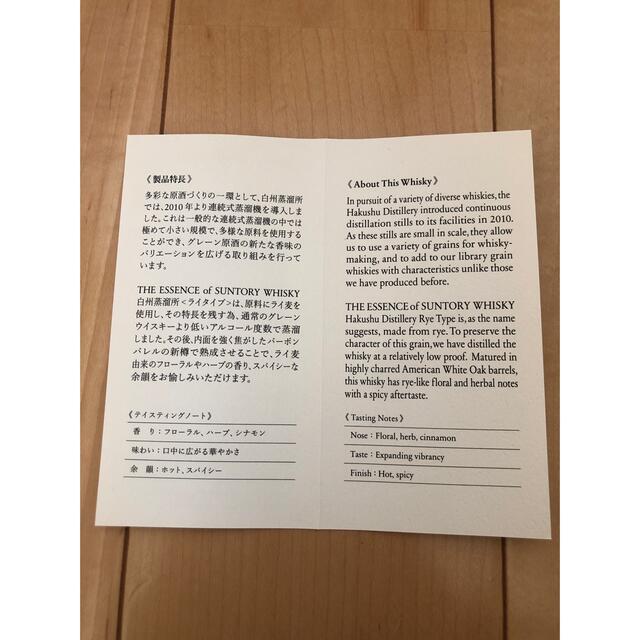 《製品特長》
多彩な原酒づくりの一環として、白州蒸溜所
では、2010年より連続式蒸溜機を導入しま
した。これは一般的な連続式蒸溜機の中では
極めて小さい規模で、多様な原料を使用する
ことができ、グレーン原酒の新たな香味の
バリエーションを広げる取り組みを行って
います。
THE ESSENCE of SUNTORY WHISKY
白州蒸溜所<ライタイプ>は、原料にライ麦を
使用し、その特長を残す為、通常のグレーン
ウイスキーより低いアルコール度数で蒸溜
しました。その後、内面を強く焦がしたバーボン
バレルの新樽で熟成させることで、ライ麦
由来のフローラルやハーブの香り、スパイシーな
余韻をお愉しみいただけます。
《テイスティングノート》
香り:フローラル、ハーブ、シナモン
味わい:口中に広がる華やかさ
余韻:ホット、スパイシー
《About This Whisky》
In pursuit of a variety of diverse whiskies, the
Hakushu Distillery introduced continuous
distillation stills to its facilities in 2010.
As these stills are small in scale, they allow
us to use a variety of grains for whisky-
making, and to add to our library grain
whiskies with characteristics unlike those
we have produced before.
THE ESSENCE of SUNTORY WHISKY
Hakushu Distillery Rye Type is, as the name
suggests, made from rye. To preserve the
character of this grain, we have distilled the
whisky at a relatively low proof. Matured in
highly charred American White Oak barrels,
this whisky has rye-like floral and herbal notes
with a spicy aftertaste.
《Tasting Notes》
Nose : Floral, herb, cinnamon
Taste : Expanding vibrancy
Finish : Hot, spicy